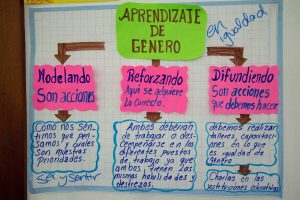 APRENDIZAJE
DE
GENERO
en
igualdad
Modelando
Son acciones
Reforzando
Aqui se adquiere
Lo correcto.
Difundiendo
Son acciones
que debemos hacer
Como nos sen-
timos que pen-
samos y cuales
son nuestras
prioridades.
Ser y sentir
Ambos deberian
de trabajar o des-
empeñarse en los
diferentes puestos
de trabajo ya que
ambos tienen las
mismas habilidades y
destrezas.
debemos realizar
talleres, capacitaci-
ones en lo que
es igualdad de
género
Charlas en las
instituciones educativas